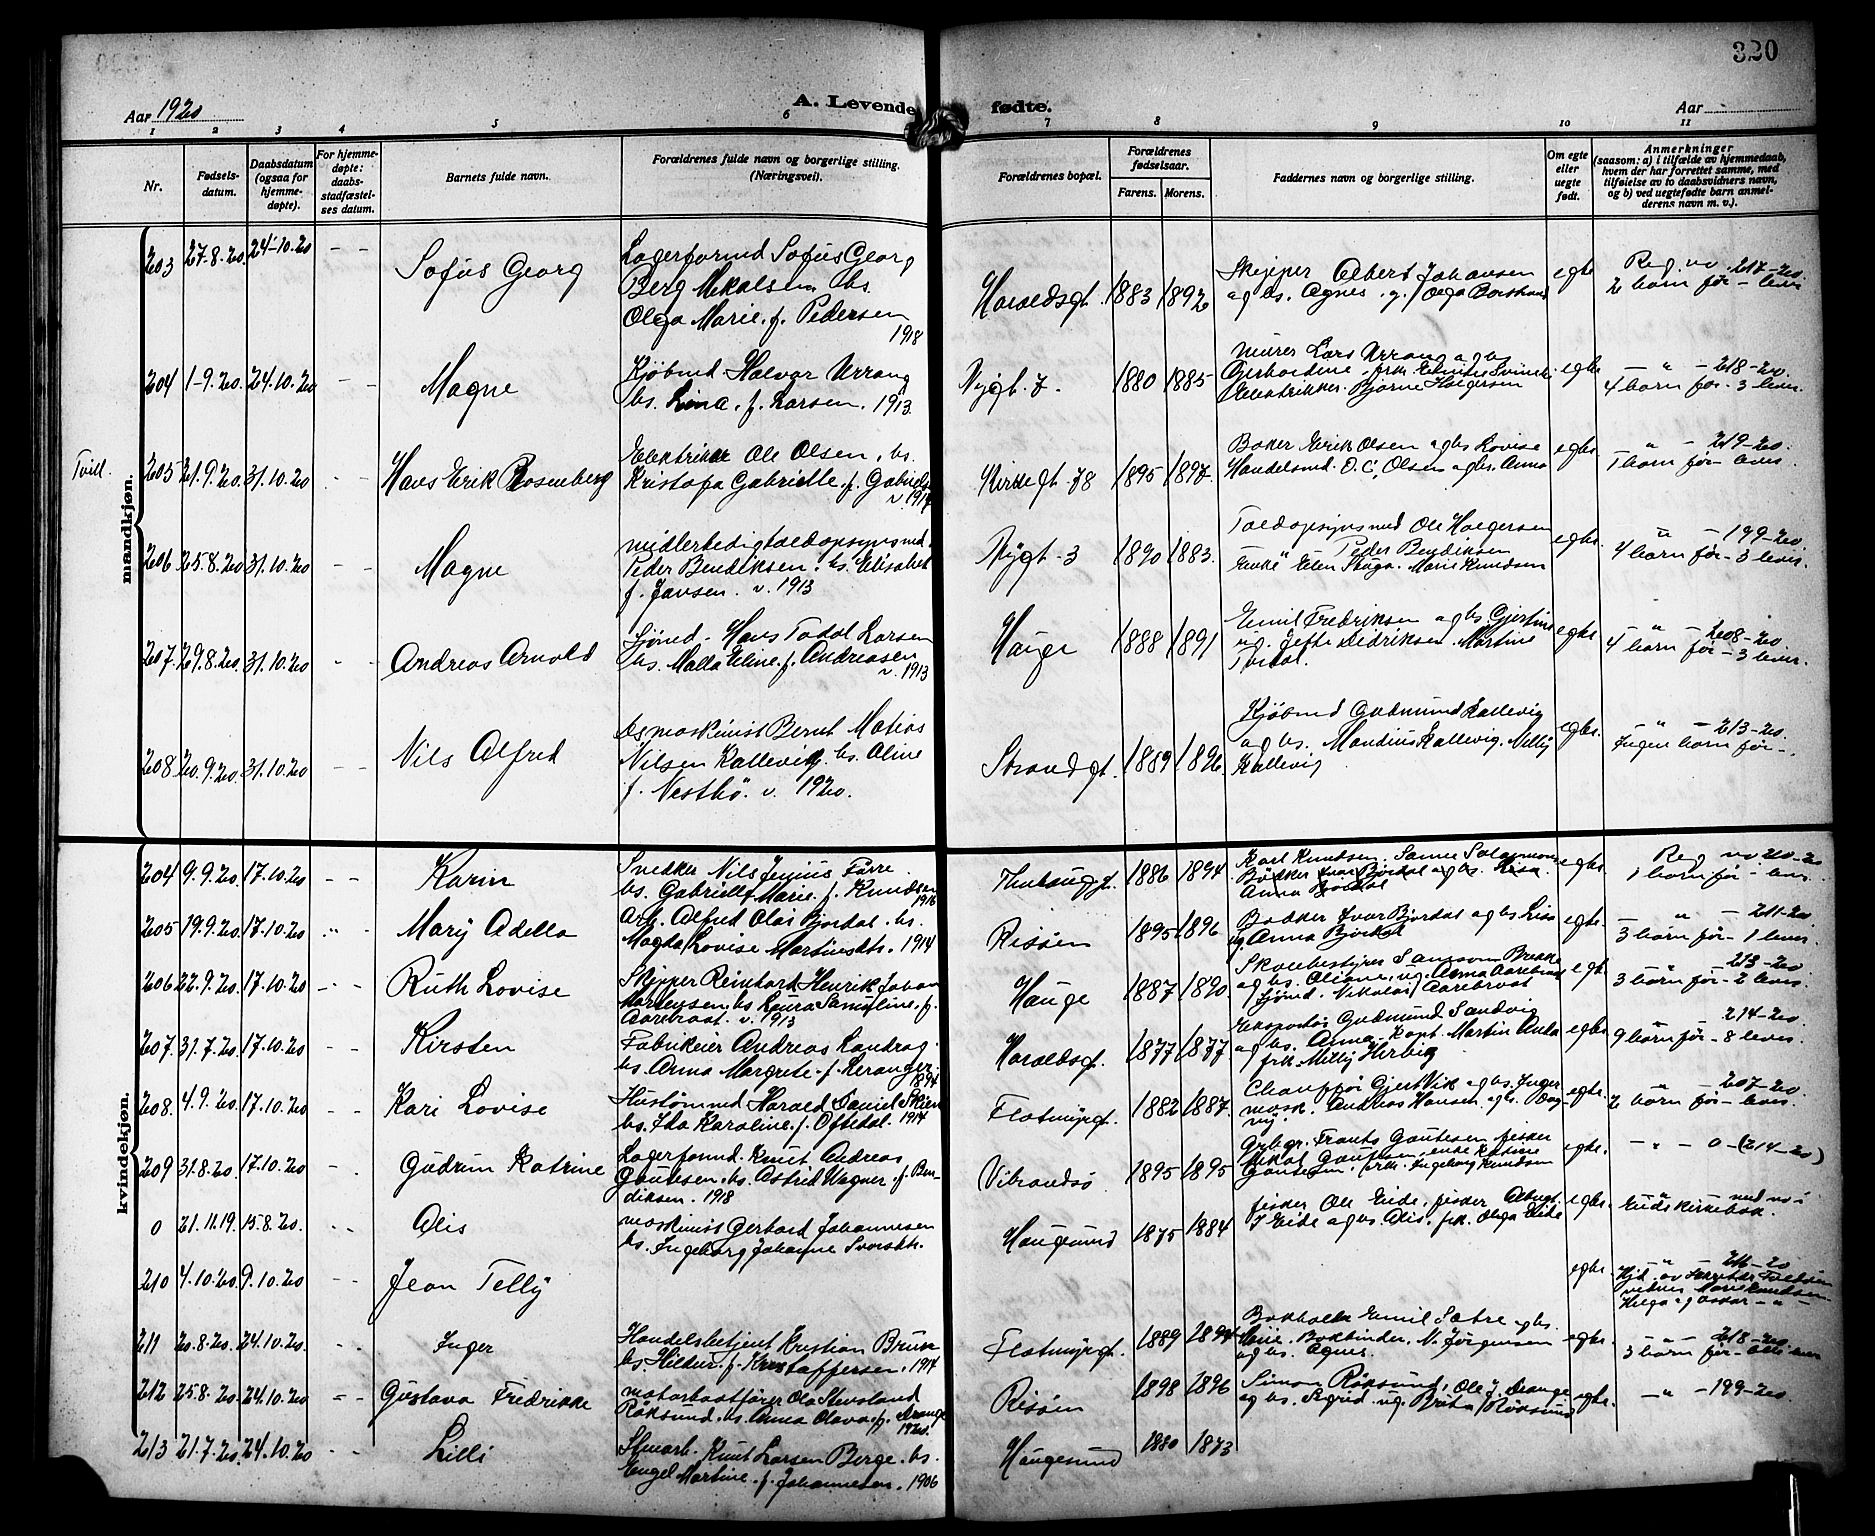 320
Aar 1920
A. Levende fødte.
Aar
1 2 3 4 5 6 7 8 9 10 11
Nr.
Fødsels-
datum.
Daabsdatum
(ogsaa for
hjemme-
døpte).
For hjemme-
døpte:
daabs-
stadfæstel-
ses datum.
Barnets fulde navn.
Forældrenes fulde navn og borgerlige stilling.
(Næringsvei).
Forældrenes bopæl.
Forældrenes
fødselsaar.
Farens. Morens.
Faddernes navn og borgerlige stilling.
Om egte
eller
uegte
født.
Anmerkninger
(saasom: a) i tilfælde av hjemmedaab,
hvem der har forrettet samme, med
tilføielse av to daabsvidners navn,
og b) ved uegtefødte barn anmel-
derens navn m. v.).
mandkjøn.
203 27.8.20. 24-10.20 - -
Sofus Georg
Lagerformd Sofus Georg
Berg Mikalsen hs.
Olga Marie. f. Pedersen
1918
Haraldsgt. 1883 1892
Skipper Albert Johansen
og hs. Agnes. g. Olga
egte
Reg. no. 217-20.
2 børn før - lever
204 1-9.20. 24.10.20 - -
Magne
Kjøbmd Halvor Urrang
hs. Lina. f. Larsen. 1913
Nygt. 7. 1880 1885
Murer Lars Urrang og hs
Elektrikker Bjarne Holgersen
egte.
- " - 218-20.
4 børn før - 3 lever.
Tvill.
205 21.9.20. 31.10.20 - -
Hans Erik Rosenberg
Elektriker Ole Olsen. hs.
Kristofa Gabrielle. f. Gabrielsen
v. 1917
Kirkegt. 78 1895 1897.
Baker Erik Olsen og hs Lovise
Handelsmd. O. C. Olsen og hs. Anna
egte.
- " - 219-20.
1 børn før - lever.
206 25.8.20 31.10.20 - -
Magne
midlertidig toldopsynsmd.
Peder Bendiksen. hs. Elisabet
f. Jansen. v. 1913
Nygt - 3 1890 1883.
Toldopsynsmd Ole Holgersen
Peder Bendiksen
Enke Elen Marie Knudsen
egte.
- " - 199-20
4 børn før - 3 lever.
207 29.8.20. 31.10.20 - -
Andreas Arnold
Sjømd. Hans Todal Larsen
hs. Malla Eline. f. Andreasen
v. 1913
Hauge 1888 1891
Emil Fredriksen og hs Gjertine
ug. Didriksen. Martine
Todal.
egte.
- " - 208-20
4 børn før - 3 lever.
208. 20.9.20. 31.10.20 - -
Nils Alfred
maskinist Bernt Matias
Nilsen Kallevig. hs. Aline
f. Nesthø. v. 1920.
Strandgt. 1889 1896
Kjøbmd Gudmund Kallevig
og hs. Mandius Kallevig. Milly
Kallevig
egte.
- " - 213-20.
Ingen børn før -
kvindekjøn.
204 9.9.20. 17.10.20 - -
Karin
Snedker Nils Jenius Førre
hs. Gabrielle Marie. f. Knudsen
1916
1886 1894
Karl Knudsen.
Bødker Ivar Bjordal og hs. Lisa
Anna Bjordal
egte.
Reg no 20-20
1 børn før - lever.
205 19.9.20. 17.10.20 - -
Mary Adella
Arb. Alfred Olai Bjordal. hs.
Magda Lovise Martinsdtr. 1914
Risøen 1895 1896
Bødker Ivar Bjordal og hs Lisa
ug. Anna Bjordal
egte.
- " - 211-20
3 børn før - 1 lever.
206 22.9.20. 17.10.20 - -
Ruth Lovise
Skipper Reinhart Henrik Johan
Mortensen hs Laura Samuline. f.
Aarebrot. v. 1913
Hauge 1887 1890.
Skolebestyrer Samson Brekke
og hs. Oliane, ug. Anna Aarebrot
Sjømd. Nikolai Aarebrot
egt.
- 213-20
3 børn før - 2 lever.
207. 31.7.20. 17.10.20 - -
Kirsten
Fabrikeier Andreas Landrag.
hs. Anna Margrete. f. Keranger.
1894
Haraldsgt. 1877 1877
Ekspeditør Gudmund Sandvig
og hs. Anna. kapt. Martin Anda
frk. Milly Herbig
egte
214-20.
9 børn før - 8 lever.
208. 4.9.20. 17.10.20 - -
Kari Lovise
Hustømmd Harald Daniel Skien
hs. Ida Karoline. f. Oftedal. 1914
Flotmyrgt. 1882 1887.
Chauffør Gjert Vik og hs. Inger
mask. Andreas Hansen og hs. Dag-
ny.
egte.
- " - 207-20
2 børn før - lever.
209 31.8.20. 17.10.20 - -
Gudrun Katrine
Lagerformd. Knut Andreas
Gautesen. hs. Astrid Wagner. f. Ben-
diksen. 1918
Vibrandsø 1895 1895
Gaardbr. Frants Gautesen fisker
Mikal Gautesen, enke Katrine
Gautesen. frk. Ingeborg Knudsen
egte.
- " - 0 - (214-20)
0 21.11.19. 15.8.20. - -
Alis
Maskinist Gerhard Johannesen
hs. Ingeborg Johanne
Haugesund 1875 1884
fisker Ole Eide, fisker Albert
J Eide og hs. Alis. frk. Olga Eide
egte.
210 4.10.20. 9.10.20 - -
Jean Telly
egte.
- " - 216-20
Hjd. av
vidner Marie Knudsen
Helga og Oskar - " -
211 20.8.20. 24.10.20. - -
Inger
Handelsbetjent Kristian Bruun
hs. Hildur. f. Kristoffersen. 1914
Flotmyrgt. 1889 1894
Bokholder Emil Sætre og hs.
Bokbinder. N. Jørgensen
og hs. Agnes.
egte.
- " - 218-20
3 børn før - alle lever
212 25.8.20. 24.10.20 - -
Gustava Fredrikke
motorbaatfører Ola Stensland
Røksund. hs. Anna Olava. f. Drange
1920.
Risøen 1898 1896
Simon Røksund, Ole J. Drange
og hs. Sigrid. ug. Brita Røksund
egte.
- " - 199-20.
213 21.7.20. 24.10.20 - -
Lilli
Stuarb. Knut Larsen Berge. hs.
Engel Martine. f. Johannesen. 1906
Haugesund 1880 1873